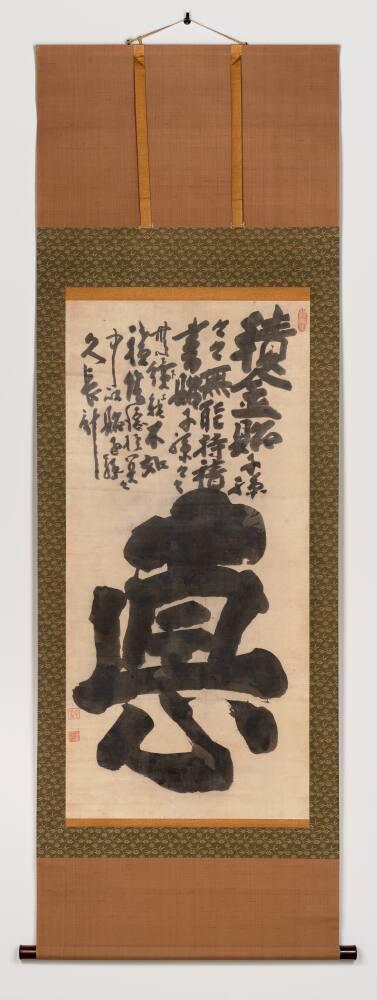 積金貽子孫
々々無能持積
書貽子孫々々
無能讀不如
積陰德冥々
中以貽子孫
久長計
悳